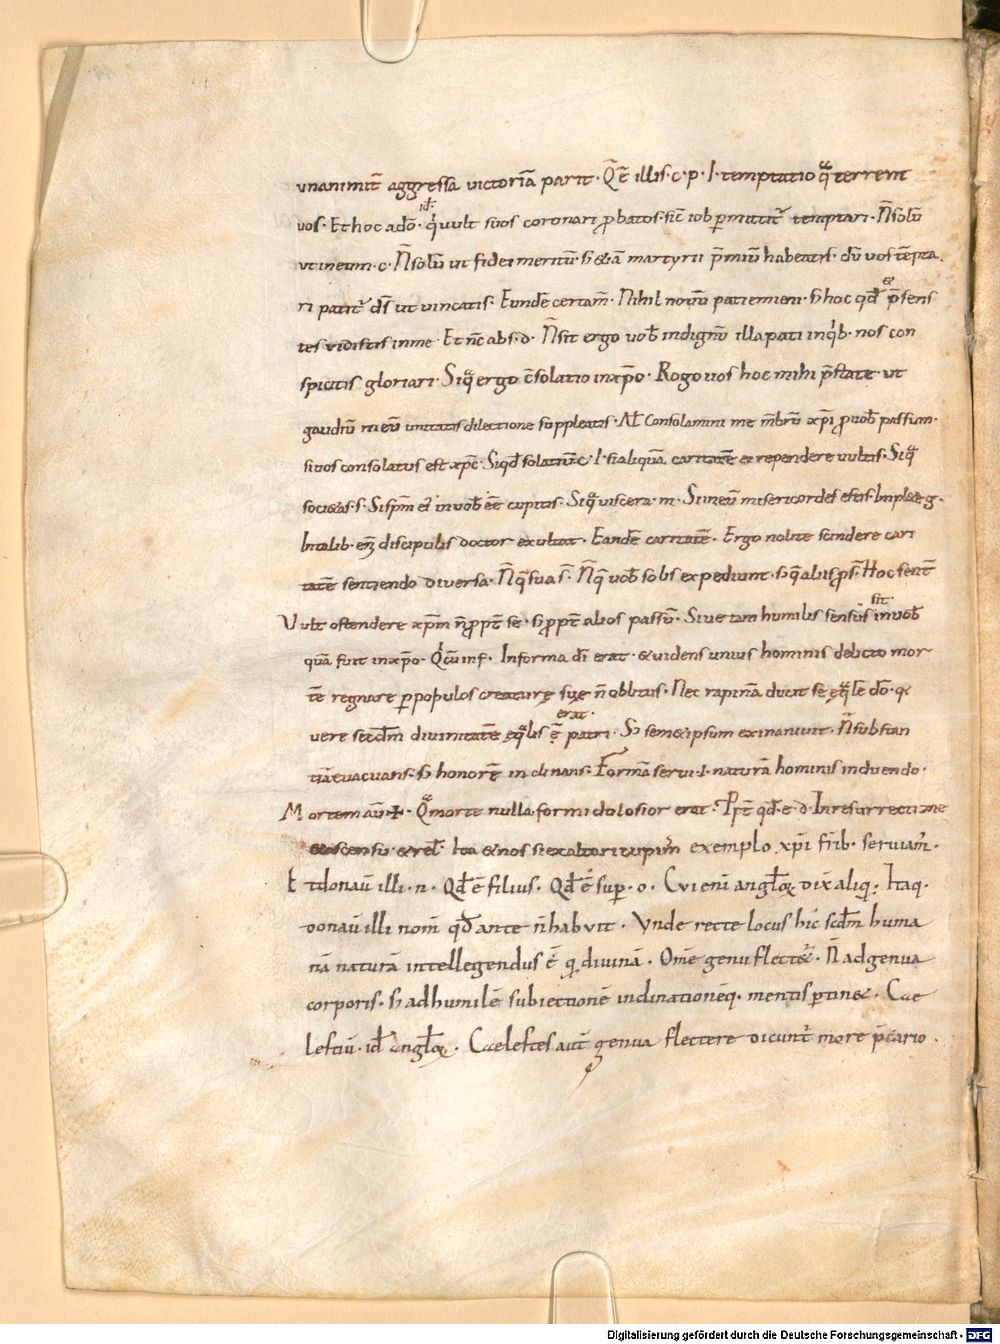 unanimit̄ aggressa victoriā parit · Q̄ ē illis · c · p · I · temptatio q̄ terrent
vos · Et hoc a dō · id · quult suos coronari p̄batos · sic̄ iob p̄mittit̄ temptari · N̄ solū
ut in eum · c · N̄ solū ut fidei meritū · s; & iā martyrii p̄miū habeatis · dū vos tēpta
ri patit̄ d̄s ut vincatis · Eundē certam̄ · Nihil novū patiemini · s; hoc qd̄ & p̄sens
tes vidistis in me · Et nc̄ abs · d · N̄ sit ergo vob̄ indignū illa pati in qb · nos con
spicitis gloriari · Siq̄ ergo c̄solatio in xp̄o · Rogo vos hoc mihi p̄state ut
gaudiū meū unitatis dilectione suppleatis · Al̄ Consolamini me m̄brū xp̄i p̄ vob̄ passum ·
si vos consolatus est xp̄c · Siqd̄ solatiū · c · I · si aliquā caritatē ei rependere vultis · Siq̄
soci&as · s · Si sp̄m ei in vob̄ ēē cupitis · Siq̄ viscera · m · Si in eū misericordes estis · Impl&e g ·
In talib · eni discipulis doctor exultat · Eandē caritatē · Ergo nolite scindere cari
tatē sentiendo diversa · N̄ q̄ sua s̄ · N̄ q̄ vob̄ solis expediunt · s; q̄ aliis p̄s̄ · Hoc sentit̄
Vult ostendere xp̄m n̄ ppt̄ se · s; ppt̄ alios passū · Sive tam humilis sensus sit · in vob̄
quā fuit in xp̄o · Qcū in f · In forma dī erat · & videns unius hominis delicto mor
tē regnare p̄ populos creaturę suę n̄ oblitus · Nec rapinā ducit se ęqualē dō · q
vere scd̄m divinitatē ęqualis ē erat · patri · S; sem&ipsum exinanivit · N̄ substan
tiā evacuans · s; honorē inclinans · Formā servi · I · naturā hominis induendo ·
Mortem aū + · Q̄ morte nulla formidolosior erat · Ppt̄ qd̄ · e · d · In resurrectione
& ascensu · & rel̄ · Ita & nos si exaltari cupim̄ exemplo xp̄i frīb · serviam̄ ·
Et donavit illi · n · Qd̄ ē filius · Qd̄ ē sup · o · Cui eni anglo℞ dix̄ aliq; Itaq ·
donavit illi nom̄ qd̄ ante n̄ habuit · Unde recte locus hic scd̄m huma
nā naturā intellegendus ē q̄ divinā · Ōme genu flect&ur · N̄ ad genua
corporis · s; ad humilē subiectionē inclinationēq · mentis p̄tin& · Cae
lestiū · id̄ anglo℞ · Caelestes aut̄ genua flectere dicunt̄ more p̄cario ·
Digitalisierung gefördert durch die Deutsche Forschungsgemeinschaft - DFG